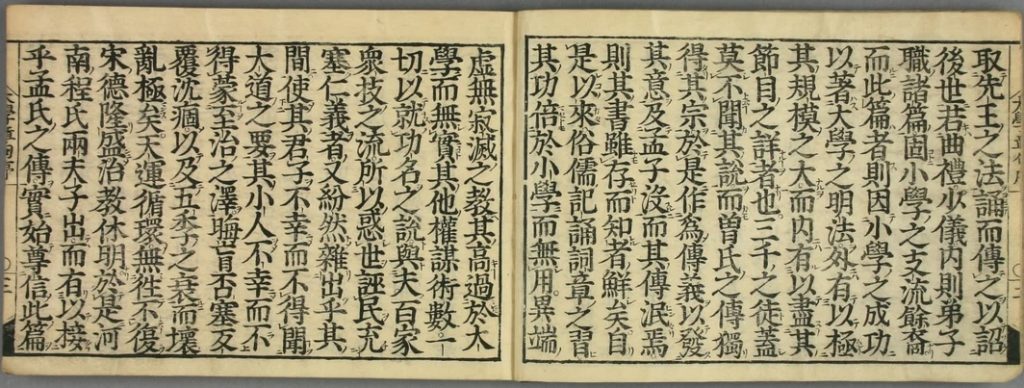 取先王之法誦而傳之以詔
後世若曲禮少儀内則弟子
職諸篇固小學之支流餘裔
而此篇者則因小學之成功
以著大學之明法外有以極
其規模之大而内有以盡其
節目之詳者也三千之徒蓋
莫不聞其説而曽氏之傳獨
得其宗於是作爲傳義以發
其意及孟子沒而其傳泯焉
則其書雖存而知者鮮矣自
是以來俗儒記誦詞章之習
其功倍於小學而無用異端
虛無寂滅之教其高過於大
學而無實其他權謀術數一
切以就功名之説與夫百家
衆技之流所以惑世誣民充
塞仁義者又紛然雜出乎其
間使其君子不幸而不得聞
大道之要其小人不幸而不
得蒙至治之澤晦盲否塞反
覆沈痼以及五季之衰而壞
亂極矣天運循環無徃不復
宋德隆盛治教休明於是河
南程氏兩夫子出而有以接
乎孟氏之傳實始尊信此篇